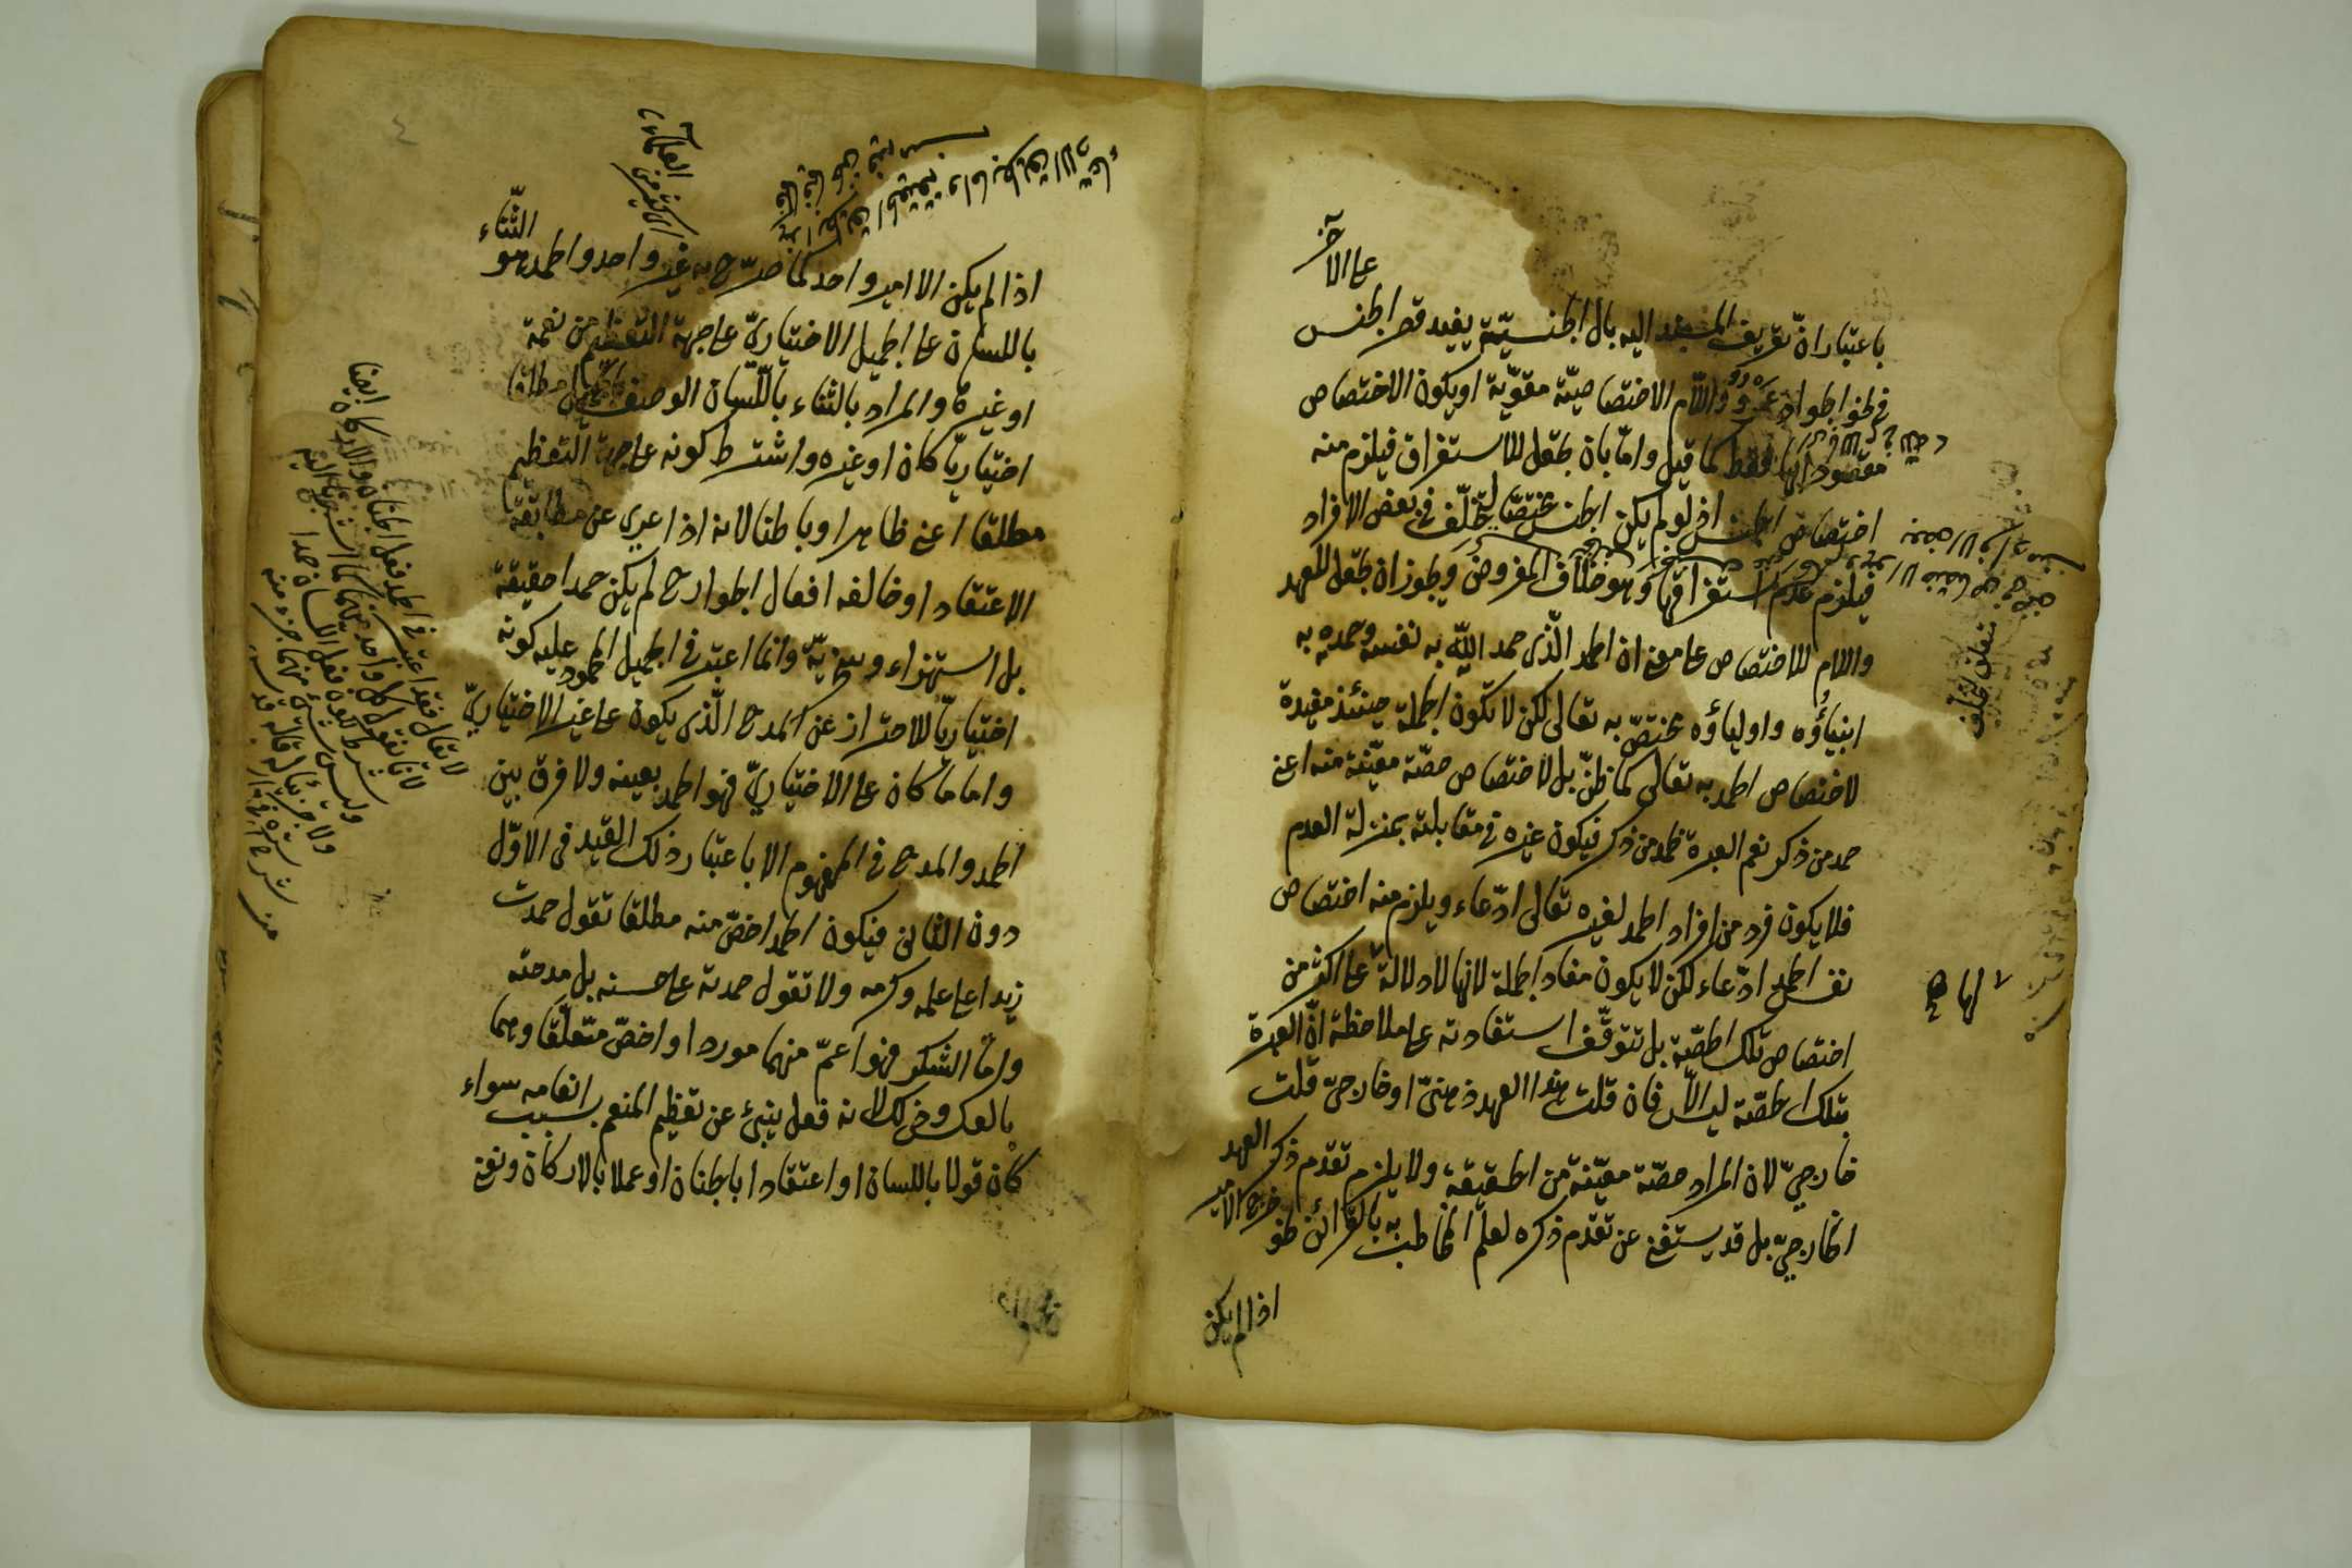 على الآخر
باعتبار انّ تعريف المسند اليه بال الجنسيّة يفيد قصر الجنس
في نحو الجواد عمرو واللّام الاختصاصيّة مقوّية او يكون الاختصاص
مقصودا بها فقط كما قيل وامّا بان تجعل للاستغراق فيلزم منه
اختصاص الجنس اذ لو لم يكن الجنس مختصّا لتخلّف في بعض الافراد
فيلزم عدم استغراقها وهو خلاف المفروض ويجوز ان تجعل للعهد
واللام للاختصاص على معنى ان الحمد الّذى حمد اللّه به نفسه وحمده به
انبياؤه واولياؤه مختصّ به تعالى لكن لا تكون الجملة حينئذ مفيدة
لاختصاص الحمد به تعالى كما ظنّ بل لاختصاص حصّة معيّنة منه اعنى
حمد من ذكر نعم العبرة بحمد من ذكر فيكون غيره في مقابلته بمنزلة العدم
فلا يكون فرد من افراد الحمد لغيره تعالى ادّعاء ويلزم منه اختصاص
نفس الحمد ادّعاء لكن لا يكون مفاد الجملة لانها لا دلالة لها على اكثر من
اختصاص تلك الحصّة بل تتوقّف استفادته على ملاحظة انّ العبرة
بتلك الحصّة ليس الّا فان قلت هذا العهد ذهنىّ او خارجىّ قلت
خارجىّ لان المراد حصّة معيّنة من الحقيقة ولا يلزم تقدم ذكر العهد
الخارجىّ بل قد يستغنى عن تقدّم ذكره لعلم المخاطب به بالقرائن نحو خرج الامير
اذا لم يكن
متعلق لتخلف
لها صح
اذا لم يكن الا امير واحد كما صرّح به غير واحد والحمد هو الثّناء
باللسان على الجميل الاختيارىّ على جهة التعظيم من نعمة
او غيرها والمراد بالثناء باللّسان الوصف بالجميل مطلقا
اختياريّا كان او غيره واشترط كونه على جهة التعظيم
مطلقا اعنى ظاهرا وباطنا لانه اذا عرى عن مطابقة
الاعتقاد او خالفه افعال الجوارح لم يكن حمدا حقيقة
بل استهزاء وسخريّة وانما اعتبر في الجميل المحمود عليه كونه
اختياريّا للاحتراز عن المدح الّذى يكون على غير الاختيارىّ
واما ما كان على الاختيارىّ فهو الحمد بعينه ولا فرق بين
الحمد والمدح في المفهوم الا باعتبار ذلك القيد فى الاوّل
دون الثانى فيكون الحمد اخصّ منه مطلقا تقول حمدت
زيدا على علمه وكرمه ولا تقول حمدته على حسنه بل مدحته
وامّا الشكر فهو اعمّ منهما موردا واخصّ متعلّقا وهما
بالعكس وذلك لانه فعل ينبئ عن تعظيم المنعم بسبب انعامه سواء
كان قولا باللسان او اعتقادا بالجنان او عملا بالاركان ونعنى
لا يقال فقد اعتبر في الحمد فعل الجنان والاركان ايضا
لانا نقول كل واحد منهما انما اشترط
شرط لكون فعل اللسان حمدا
وليس شئ منهما جزء منه
ولا جزئيا له قاله قدس
سره في